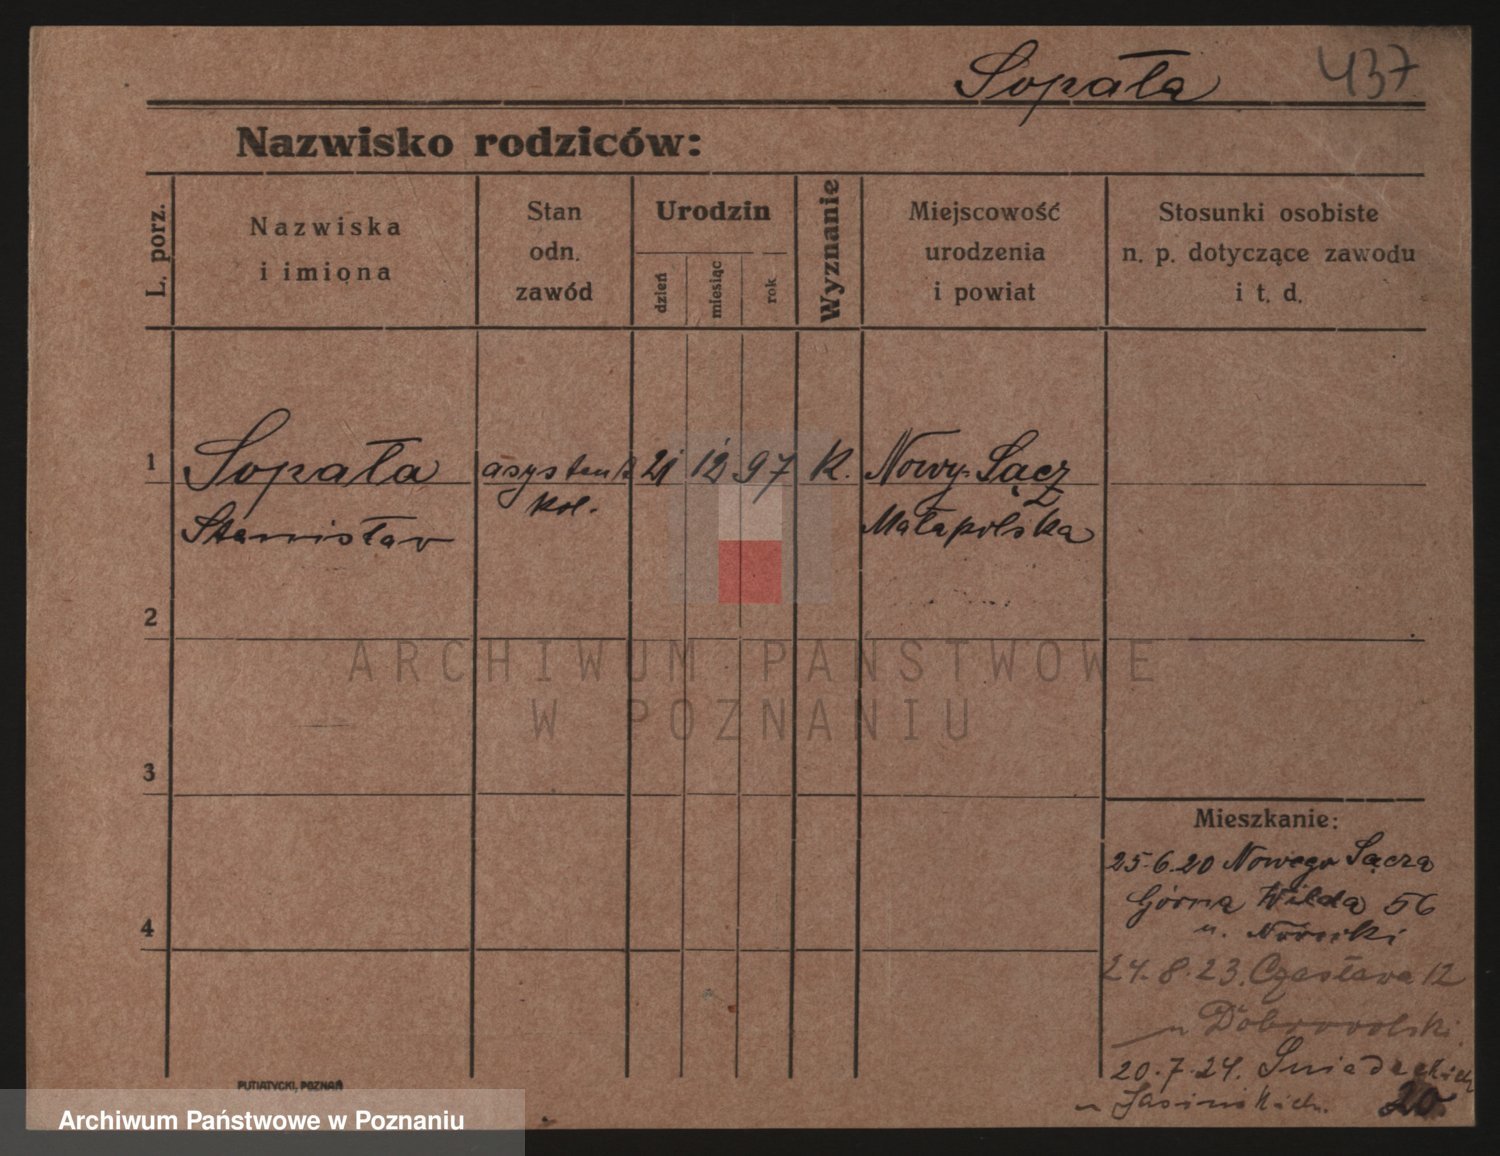 Sopała 437
Nazwisko rodziców:
L. porz.
Nazwiska
i imiona
Stan
odn.
zawód
Urodzin
dzień
miesiąc
rok
Wyznanie
Miejscowość
urodzenia
i powiat
Stosunki osobiste
n. p. dotyczące zawodu
i t. d.
1 Sopała asystent 21 12 97 K. Nowy-Sącz
Stanisław kol. Małapolska
2
3
4
Mieszkanie:
25.6.20 Nowego Sącza
Górna Wilda 56
u. Nowicki
24.8.23. Czesława 12
u Dobrowolski
20.7.24. Śniadeckich
u Jasińskich. 20
PUTIATYCKI, POZNAŃ
ARCHIWUM PAŃSTWOWE
W POZNANIU
Archiwum Państwowe w Poznaniu